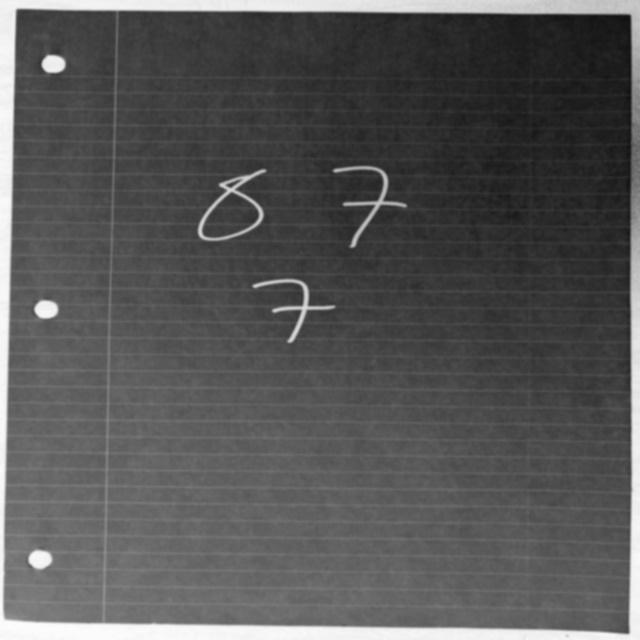 8 7
7